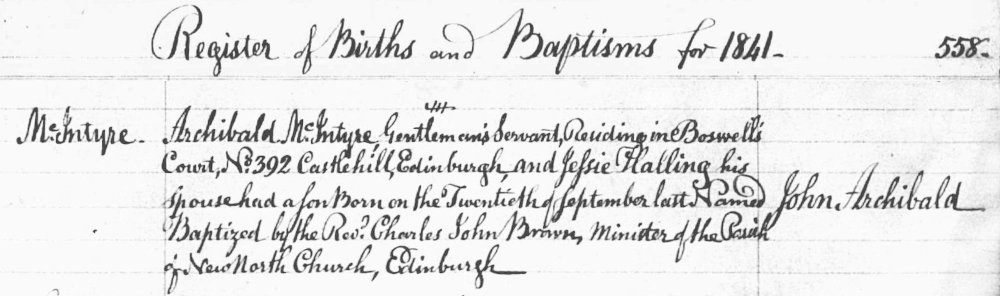 Register of Births and Baptisms for 1841- 558-
McIntyre. Archibald McIntyre, Gentleman's Servant, Residing in Boswell's
Court, No. 392 Castlehill, Edinburgh and Jessie Halling his
Spouse had a son Born on the Twentieth of September last Named John Archibald
Baptized by the Revd. Charles John Brown, Minister of the Parish
of New North Church, Edinburgh